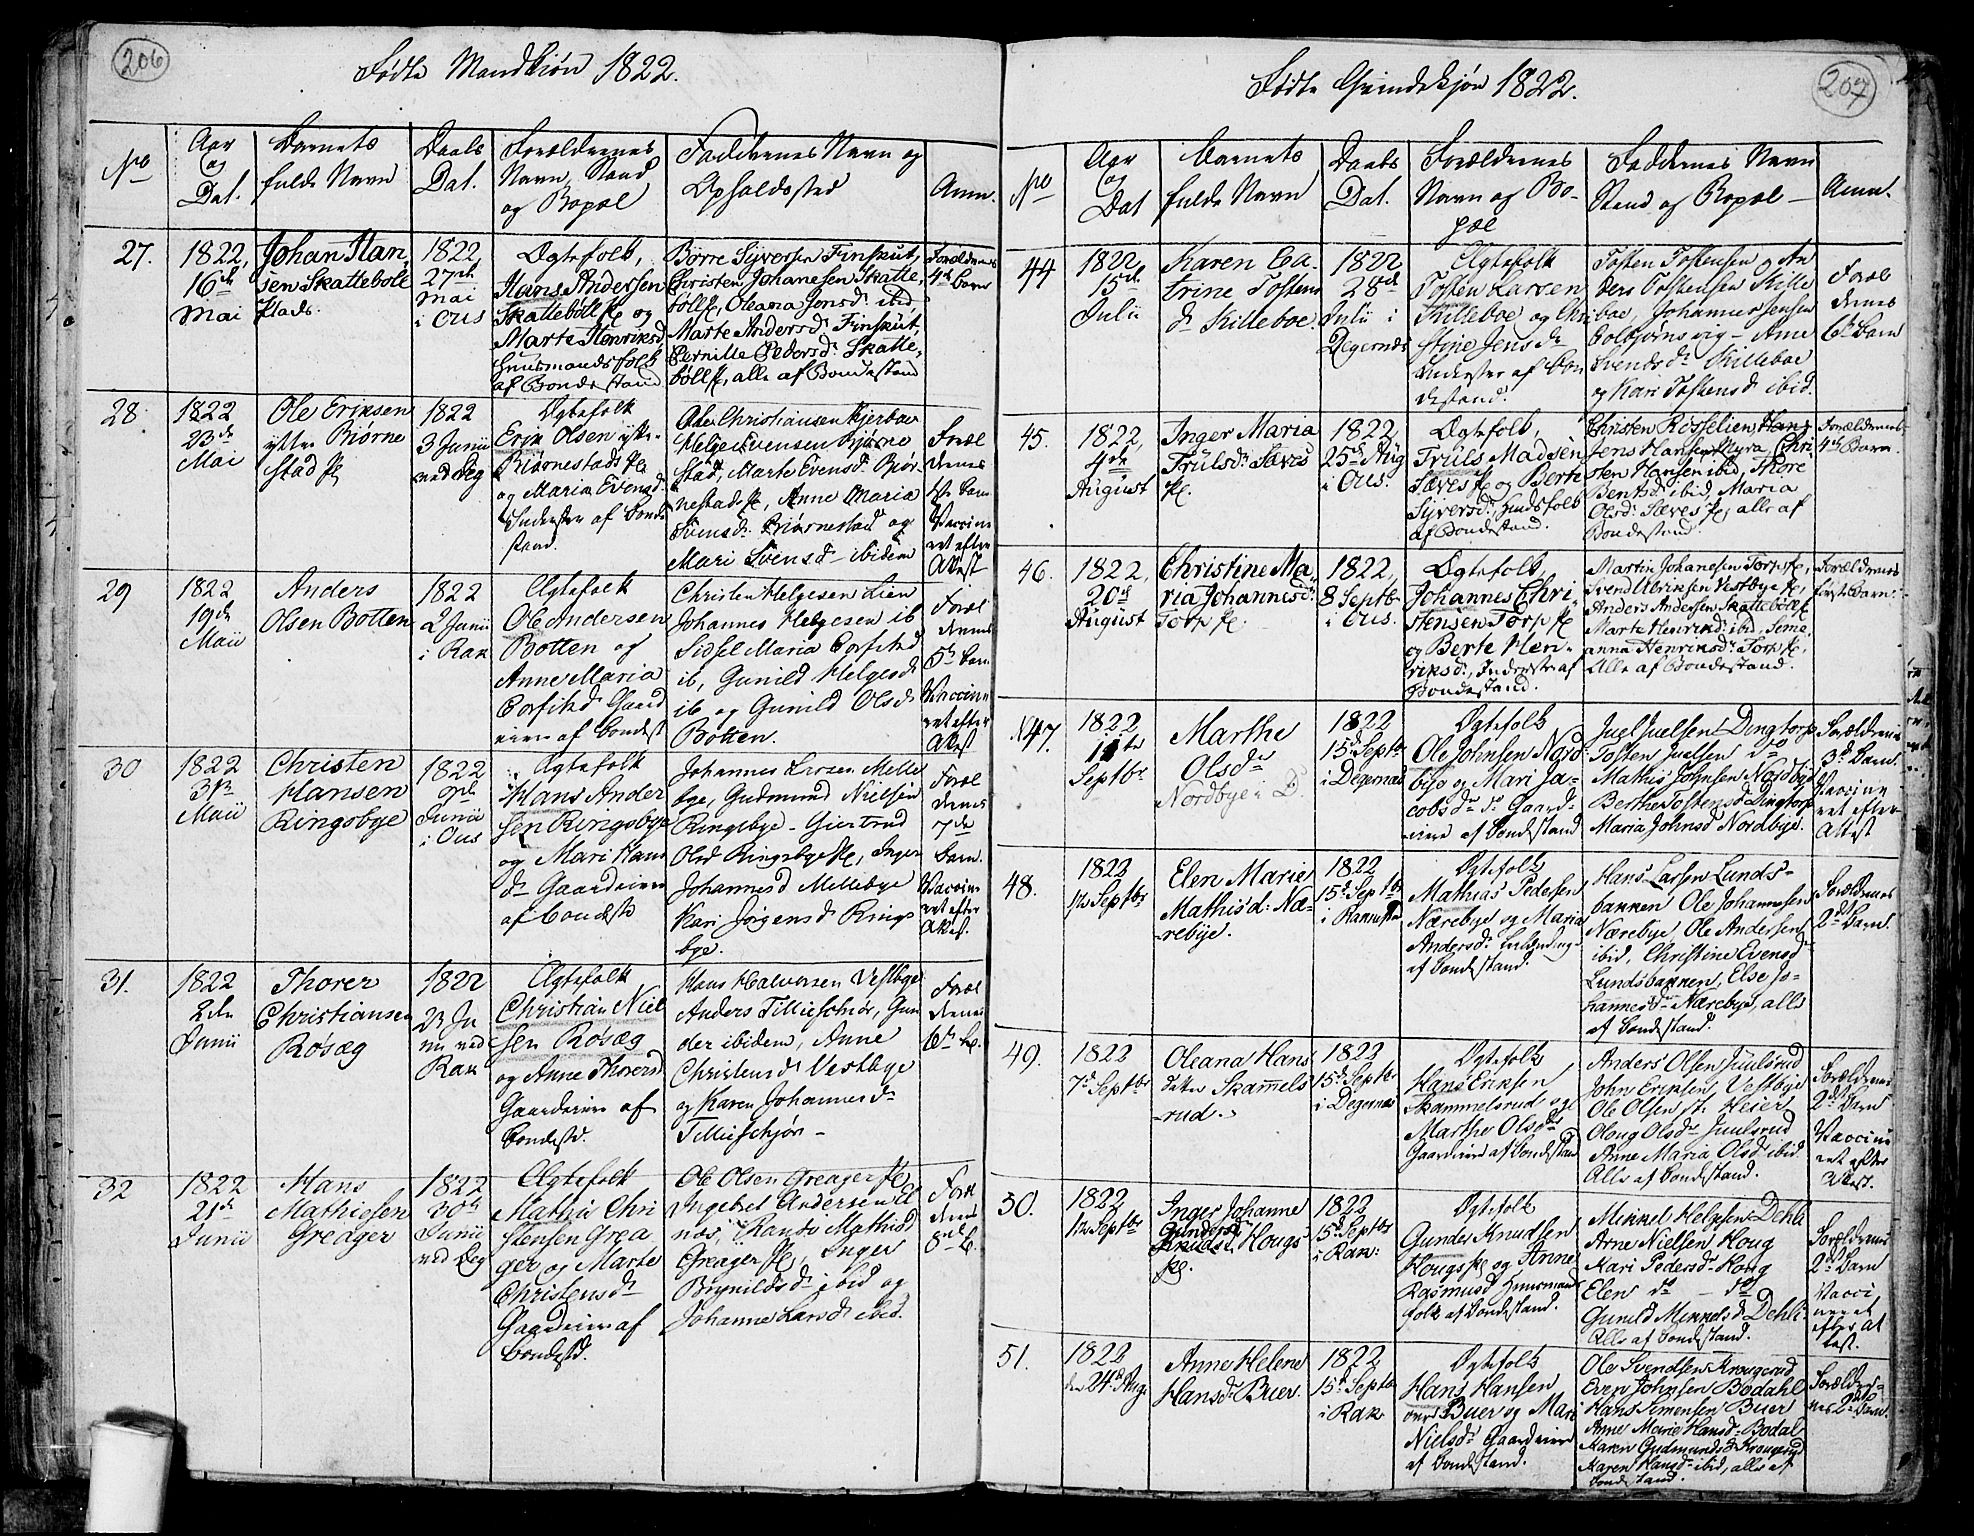 206
Fødte Mandkiøn 1822.
No
Aar
og
Dat.
Barnets
fulde Navn
Daabs
Dat.
Forældrenes
Navn, Stand
og Bopæl
Faddernes Navn og
Opholdssted
Anm.
27.
1822,
16de
Mai
Johan Han,
sen Skattebøll
Stads.
1822
27de
Mai
i Ous
Ægtefolk,
Hans Andersen
Skattebøll og
Marte Henriksd.
Huusmandsfolk
af Bondestand
Børre Syversen Finskut,
Christen Johanesen Skatte,
bøll, Oleana Jonsd. ibid
Marte Andersd. Finskut,
Pernille Pedersd. Skatte,
bøll, alle af Bondestand
Forældrenes
4de Barn
28.
1822
23de
Mai
Ole Eriksen
ytter Biørne
stad
1822
3 Junii
ved Deg
Ægtefolk
Erik Olsen ytte-
Biørnestad
og Maria Evensd.
Inderster af Bonde
stand.
Ole Christiansen Kjerboe
Helge Svensen Bjørne
stad, Marte Evensd. Biør
nestad, Anne Maria
Svensd. Biørnestad og
Mari Svensd. ibidem
Foræl
drenes
Barn
Vaccine
ret efter
Attest
29
1822
19de
Maii
Anders
Olsen Botten
1822
2 Junii
i Rak
Ægtefolk
Ole Andersen
Botten og
Anne Maria
Corfitsd. Gaard
eiere af Bondest
Christen Helgesen Lien
Johannes Helgesen ib
Sidsel Maria Corfitsd
ib, Gunild Helgesd
ib og Gunild Olsd.
Botten.
Foræl
drenes
5te Barn
Vaccine
ret efter
Attest
30
1822
3die
Maii
Christen
Hansen
Ringsbye
1822
9de
Junii
i Ous
Ægtefolk
Hans Ander
sen Ringsbye
og Mari Hans
dr. Gaardeiere
af Bondestd
Johannes Larsen Melle
bye, Gudmund Nielsen
Ringsbye - Giertrud
Olsd Ringsbye, Inger
Johannesd Mellebye
Kari Jørgensd. Rings
bye.
Foræl
drenes
7de
Barn.
Vaccine
ret efter
Attest.
31.
1822
2den
Junii
Thorer
Christiansen
Rosæg
1822
23 Ju
nii ved
Rak
Ægtefolk
Christian Niel
sen Rosæg
og Anne Thorersd
Gaardeiere af
Bondestd.
Hans Halvorsen Vestbye
Anders Tillieschiør, Gun
der ibidem, Anne
Christensd Vestbye
og Karen Johannesd.
Tillieschjør -
Foræl
drenes
6te B.
32
1822
21de
Junii
Hans
Mathiesen
Greager
1822
30de
Junii
ved Deg
Ægtefolk
Mathis Chri
stensen Grea
ger og Marte
Christensd.
Gaardeiere af
Bondestd.
Ole Olsen Greager
Ingebret Andersen El
nes, Randi Mathisd
Greager, Inger
Brynildsd. ibid og
Johanne Larsd. ibid.
Foræl
drenes
8de B.
207
Fødte Qvindekjøn 1822.
No
Aar
og
Dat
Barnets
fulde Navn
Daabs
Dat.
Forældrenes
Navn og Bo-
pæl
Faddernes Navn
Stand og Bopæl -
Anm.
44
1822
15de
Julii
Karen Ca-
trine Tostens
d. Killeboe
1822
28de
Julii i
Degernæs
Ægtefolk
Tosten Larsen
Killeboe og Chri
stine Jensd.
Inderster af Bon
destand.
Tosten Tostensen og An
ders Tostensen Kille
boe, Johannes Jensen
Colbjørnsvig - Anne
Svendsd. Killeboe
og Kari Tostensd ibid.
Foræl
drenes
6te Barn
45.
1822,
4de
August
Inger Maria
Trulsd. Sæves
1822,
25de Aug
i Ous.
Ægtefolk,
Truls Madsen
Sæves og Berte
Syversd., Huusfolk
af Bondestand.
Christen Røsselien
Jens Hansen Myra, Chri
sten Hansen ibid, Thore
Bentsd. ibid, Maria
Olsd. Sæves, alle af
Bondestand.
Forældrenes
4de Barn
46.
1822,
20de
August
Christine Ma,
ria Johannesd.
Torp
1822,
8 Septbr
i Ous.
Ægtefolk,
Johannes Chri,
stensen Torp
og Berte Hen-
riksd., Inderster af
Bondestand.
Martin Johanesen Torp,
Svend Ulriksen Vestbye,
Anders Andersen Skattebøll
Marte Henriksd. ibid, Seme
anna Henriksd. Torp,
Alle af Bondestand.
Forældrenes
første Barn.
47.
1822
11te
Septbr.
Marthe
Olsdr
Nordbye i D.
1822
15d. Septbr
i Degernæs
Ægtefolk
Ole Johnsen Nord-
bye og Mari Ja-
cobsdr. Gaard-
eiere af Bondestand
Juel Juelsen Dingtorp
Tosten Juelsen do
Mathis Johnsen Nordbye
Berthe Tostensd Dingtorp
Maria Johnsd Nordbye.
Forældrenes
3d. Barn.
Vaccine
ret efter
Attest
48.
1822
12 Septbr
Elen Marie
Mathisd: Næ-
rebye.
1822
15d. Septbr
i Rakkestad
Ægtefolk
Mathias Pedersen
Nærebye og Maria
Andersd.
af Bondestand.
Hans Larsen Lunds-
bakken Ole Johannesen
Nærebye, Ole Andersen
ibid, Christine Evensd.
Lundsbakken, Else Jo-
hannesd. Nærebye, alle
af Bondestand.
Forældrenes
2d. Barn.
49.
1822
7d. Septbr
Oleana Hans
datter Skammels
rud.
1822
15d. Septbr
i Degernæs
Ægtefolk
Hans Eriksen
Skammelsrud og
Marthe Olsdr
Gaardeiere af Bondestand
Anders Olsen Juulsrud
John Eriksen Vestbye
Ole Olsen st. Heier
Oloug Olsdr Juulsrud
Anne Maria Olsd. ibid
Alle af Bondestand.
Forældrenes
2det Barn
Vaccine
ret efter
Attest.
50.
1822
12 Septbr
Inger Johanne
Gundersd
Hougs
1822
15d. Septbr
i Rak:
Ægtefolk
Gunder Knudsen
Hougs og Anne
Rasmusd Huusmands
folk af Bondestand.
Mikkel Helgesen Dehli
Arne Nielsen Houg
Kari Pedersd. Houg
Elen do - do
Gunild Mikkelsd Dehli.
Alle af Bondestand.
Forældrenes
2d. Barn
Vacci
neret
efter at
test.
51.
1822
den 24d. Aug.
Anne Helene
Hansd. Buer.
1822
15d. Septbr
i Rak
Ægtefolk
Hans Hansen
øvre Buer og Mari
Nielsd. Gaardeiere
af Bondestand.
Ole Svendsen Krougerud
Even Johnsen Bodahl
Hans Simensen Buer
Anne Marie Hansd. Bodal
Karen Gudmundsd. Krougerud
Karen Hansd. ibid, alle af
Bondestand.
Forældre-
nes 2d. Barn.